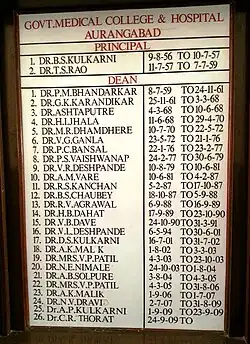 GOVT.MEDICAL COLLEGE & HOSPITAL
AURANGABAD
PRINCIPAL
1. DR.B.S.KULKARNI 9-8-56 TO 10-7-57
2. DR.T.S.RAO 11-7-57 TO 7-7-59
DEAN
1 DR.P.M.BHANDARKAR 8-7-59 TO 24-11-61
2 DR.G.K.KARANDIKAR 25-11-61 TO 3-3-68
3 DR.ASHTAPUTRE 4-3-68 TO 10-6-68
4 DR.H.I.JHALA 11-6-68 TO 29-4-70
5 DR.M.R.DHAMDHERE 10-7-70 TO 22-5-72
6 DR.V.G.GANLA 23-5-72 TO 21-1-76
7 DR.P.C.BANSAL 22-1-76 TO 23-2-77
8 DR.P.S.VAISHWANAP 24-2-77 TO 30-6-79
9 DR.V.R.DESHPANDE 10-8-79 TO 10-6-81
10 DR.A.M.VARE 10-6-81 TO 4-2-87
11 DR.R.S.KANCHAN 5-2-87 TO 17-10-87
12 DR.B.S.CHAUBEY 18-10-87 TO 5-9-88
13 DR.R.V.AGRAWAL 6-9-88 TO 16-9-89
14 DR.H.B.DAHAT 17-9-89 TO 23-10-90
15 DR.V.B.DAVE 24-10-90 TO 31-3-91
16 DR.V.L.DESHPANDE 6-5-94 TO 30-6-01
17 DR.D.S.KULKARNI 16-7-01 TO 31-7-02
18 DR.A.K.MALIK 1-8-02 TO 3-3-03
19 DR.MRS.V.P.PATIL 4-3-03 TO 23-10-03
20 DR.N.E.NIMALE 24-10-03 TO 1-8-04
21 DR.A.B.SOLPURE 3-8-04 TO 4-3-05
22 DR.MRS.V.P.PATIL 4-3-05 TO 31-8-06
23 DR.A.K.MALIK 1-9-06 TO 1-7-07
24 DR.N.V. 2-7-07 TO 31-8-09
25 Dr.A.P.KULKARNI 1-9-09 TO 23-9-09
26 Dr.C.R. THORAT 24-9-09 TO